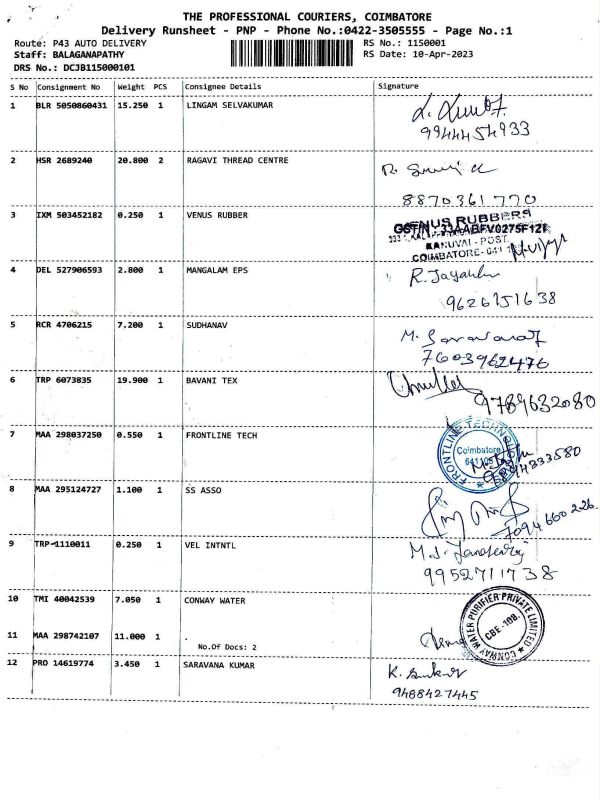 THE PROFESSIONAL COURIERS, COIMBATORE
Delivery Runsheet - PNP - Phone No.:0422-3505555 - Page No.:1
Route: P43 AUTO DELIVERY RS No.: 1150001
Staff: BALAGANAPATHY RS Date: 10-Apr-2023
DRS No.: DCJB115000101
S No Consignment No Weight PCS Consignee Details Signature
1 BLR 5050860431 15.250 1 LINGAM SELVAKUMAR
9944454933
2 HSR 2689240 20.800 2 RAGAVI THREAD CENTRE
8870361770
3 IXM 503452182 0.250 1 VENUS RUBBER
VENUS RUBBERS
GSTIN: 33AABFV0275F1ZI
KANUVAI - POST.
COIMBATORE- 641
4 DEL 527906593 2.800 1 MANGALAM EPS
R. Jayanthi
9626751638
5 RCR 4706215 7.200 1 SUDHANAV
M. Saravanan
7603962476
6 TRP 6073835 19.900 1 BAVANI TEX
9789632080
7 MAA 298037250 0.550 1 FRONTLINE TECH
FRONTLINE TECHNOLO
Coimbatore
8 MAA 295124727 1.100 1 SS ASSO
7094660226
9 TRP-1110011 0.250 1 VEL INTNTL
9952711738
10 TMI 40042539 7.050 1 CONWAY WATER
CONWAY WATER PURIFIER PRIVATE LIMITED
CBE-108.
11 MAA 298742107 11.000 1 .
No.Of Docs: 2
12 PRO 14619774 3.450 1 SARAVANA KUMAR
9488427445